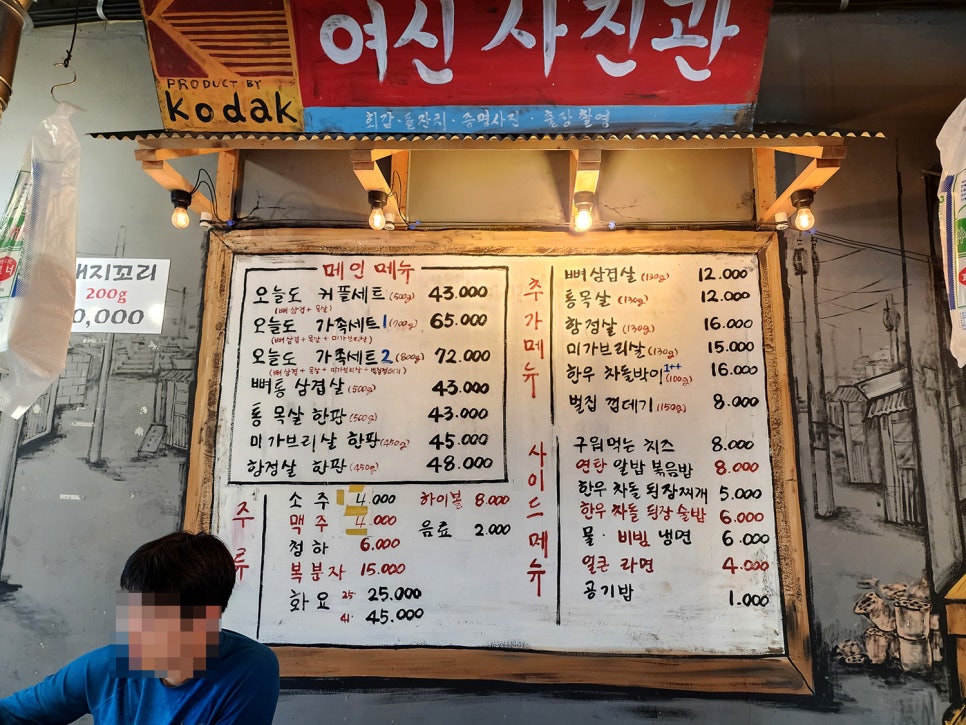 여신 사진관
PRODUCT BY
Kodak
회갑·돌잔치·증명사진·출장촬영
돼지꼬리
200g
0,000
메인 메뉴
오늘도 커플세트 (500g) 43.000
(뼈삼겹 + 목살)
오늘도 가족세트1 (700g) 65.000
(뼈삼겹 + 목살 + 미가브리살)
오늘도 가족세트2 (800g) 72.000
(뼈삼겹 + 목살 + 미가브리살 + 벌집껍데기)
뼈통 삼겹살 (500g) 43.000
통 목살 한판 (500g) 43.000
미가브리살 한판 (450g) 45.000
항정살 한판 (450g) 48.000
주류
소주 4.000
맥주 4.000
청하 6.000
복분자 15.000
화요 25 25.000
41 45.000
하이볼 8.000
음료 2.000
추가메뉴
뼈삼겹살 (130g) 12.000
통목살 (130g) 12.000
항정살 (130g) 16.000
미가브리살 (130g) 15.000
한우 차돌박이 1++ (100g) 16.000
벌집 껍데기 (150g) 8.000
사이드메뉴
구워먹는 치즈 8.000
연탄 알밥 볶음밥 8.000
한우 차돌 된장찌개 5.000
한우 차돌 된장 술밥 6.000
물·비빔 냉면 6.000
얼큰 라면 4.000
공기밥 1.000